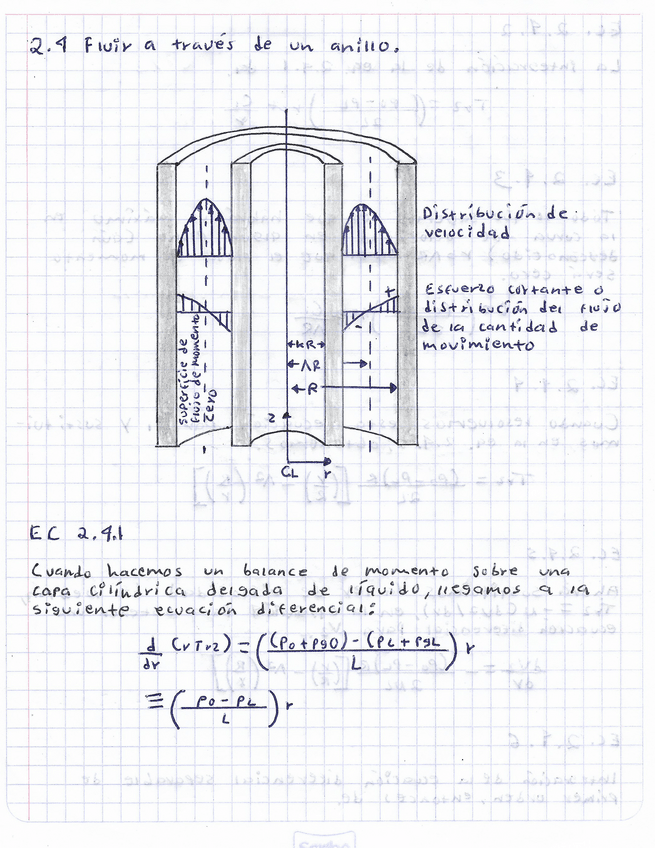 2.4 Fluir a través de un anillo.
Distribución de
velocidad
Esfuerzo cortante o
distribución del flujo
de la cantidad de
movimiento
+
-
superficie de
flujo de momento
Zero
κR
ΛR
R
z
CL
r
EC 2.4.1
Cuando hacemos un balance de momento sobre una
capa cilíndrica delgada de líquido, llegamos a la
siguiente ecuación diferencial:
d/dr (rTrz) = ((Po+pg0) - (PL+pgL) / L) r
≡ (Po - PL / L) r